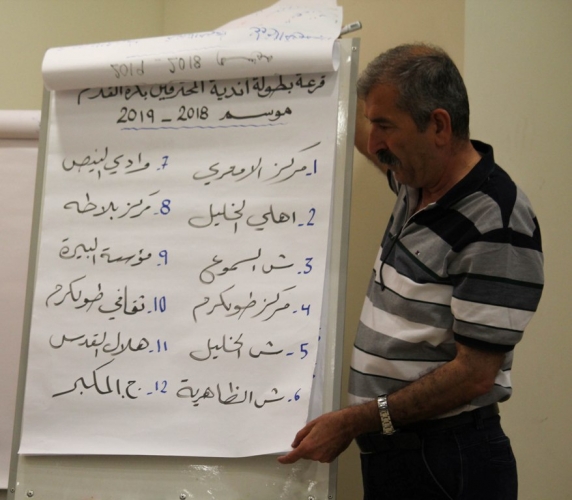 2018 - 2019
قرعة بطولة اندية المحترفين بكرة القدم
موسم 2018 - 2019
1. مركز الامعري
2. اهلي الخليل
3. ش السموع
4. مركز طولكرم
5 - ش الخليل
6. ش الظاهرية
7. وادي النيص
8. مركز بلاطه
9. مؤسسة البيرة
10. ثقافي طولكرم
11. هلال القدس
12. ج. المكبر